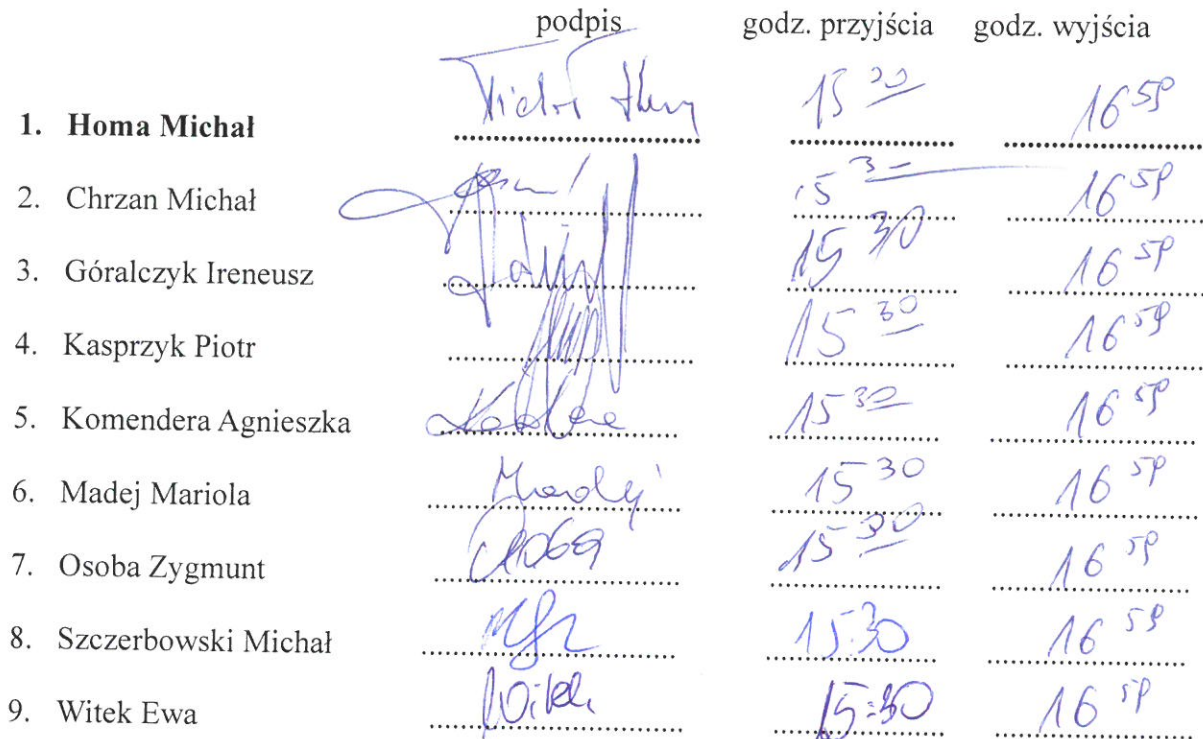 podpis godz. przyjścia godz. wyjścia
1. Homa Michał 15 30 16 59
2. Chrzan Michał 15 30 16 59
3. Góralczyk Ireneusz 15 30 16 59
4. Kasprzyk Piotr 15 30 16 59
5. Komendera Agnieszka 15 30 16 59
6. Madej Mariola Madej 15 30 16 59
7. Osoba Zygmunt Osoba 15 30 16 59
8. Szczerbowski Michał 15:30 16 59
9. Witek Ewa Witek 15:30 16 59